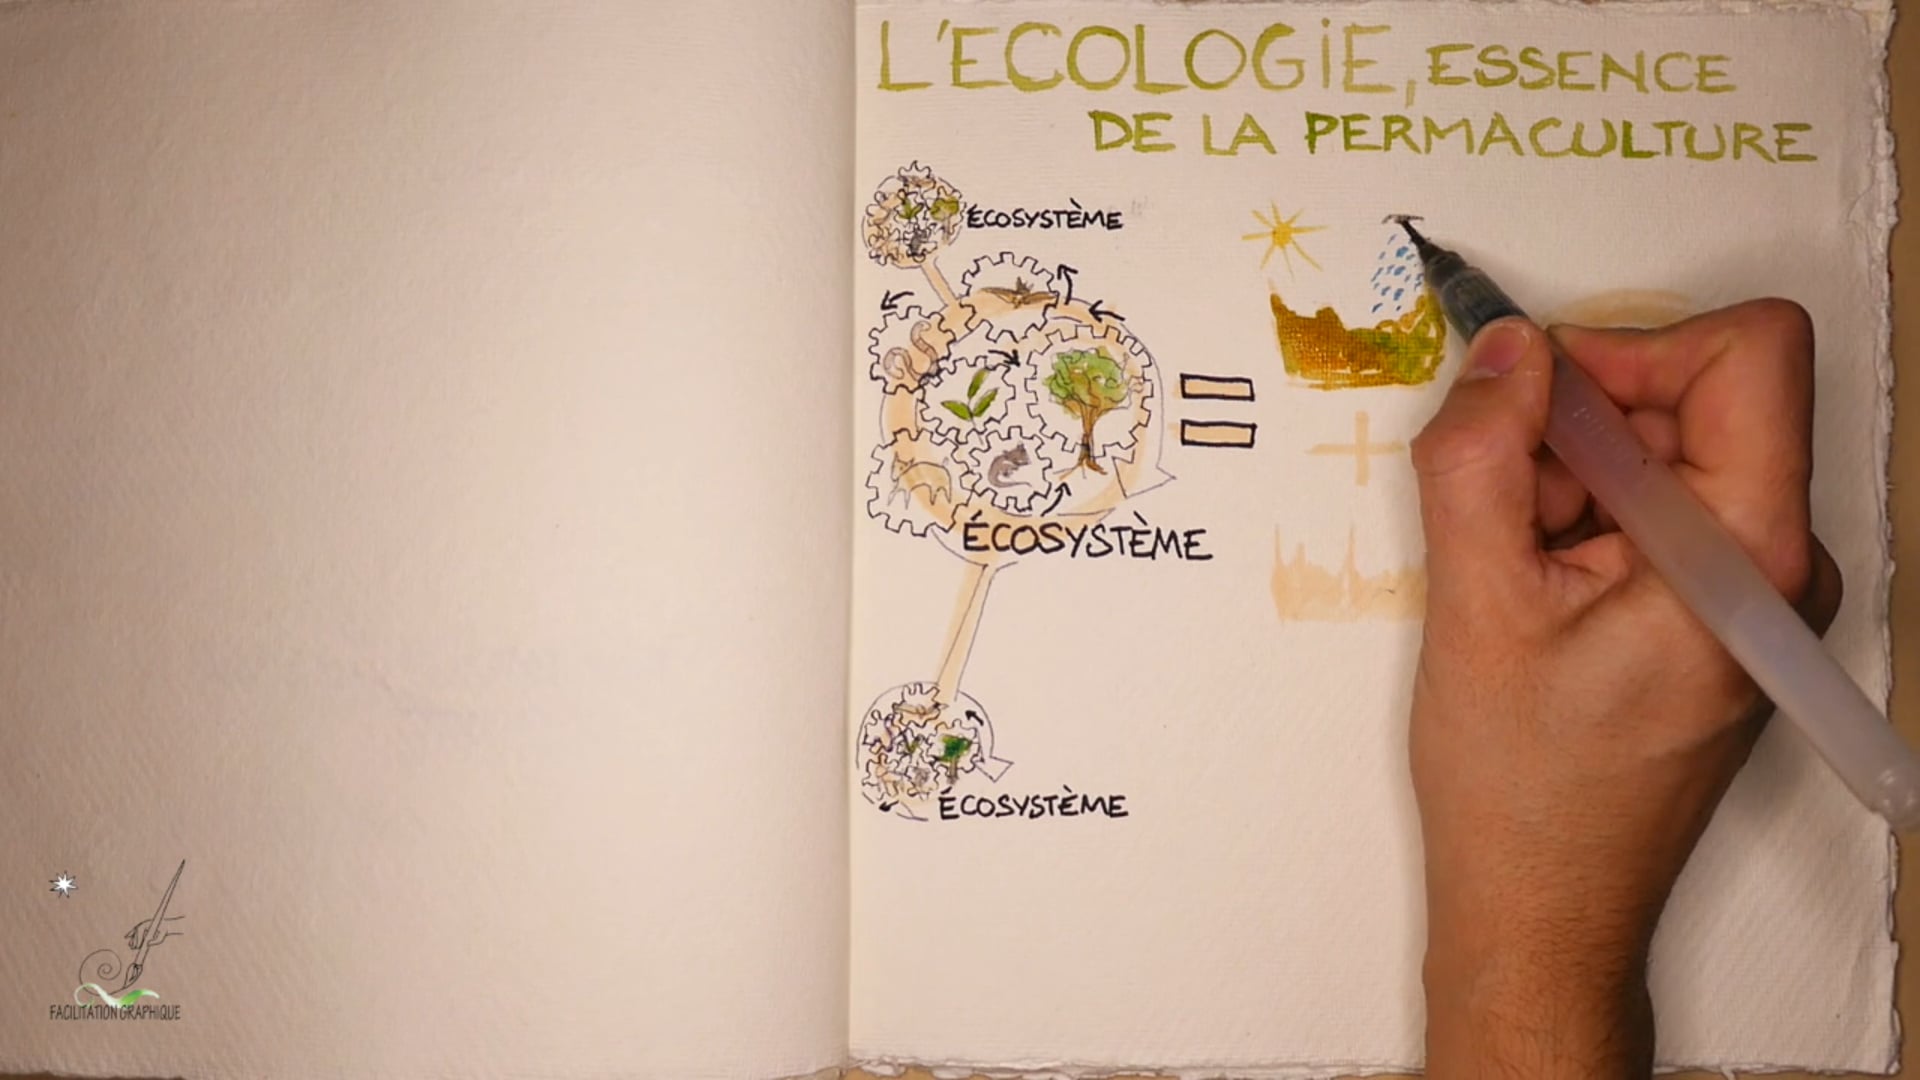 L'ECOLOGIE, ESSENCE
DE LA PERMACULTURE
ÉCOSYSTÈME
ÉCOSYSTÈME
ÉCOSYSTÈME
FACILITATION GRAPHIQUE